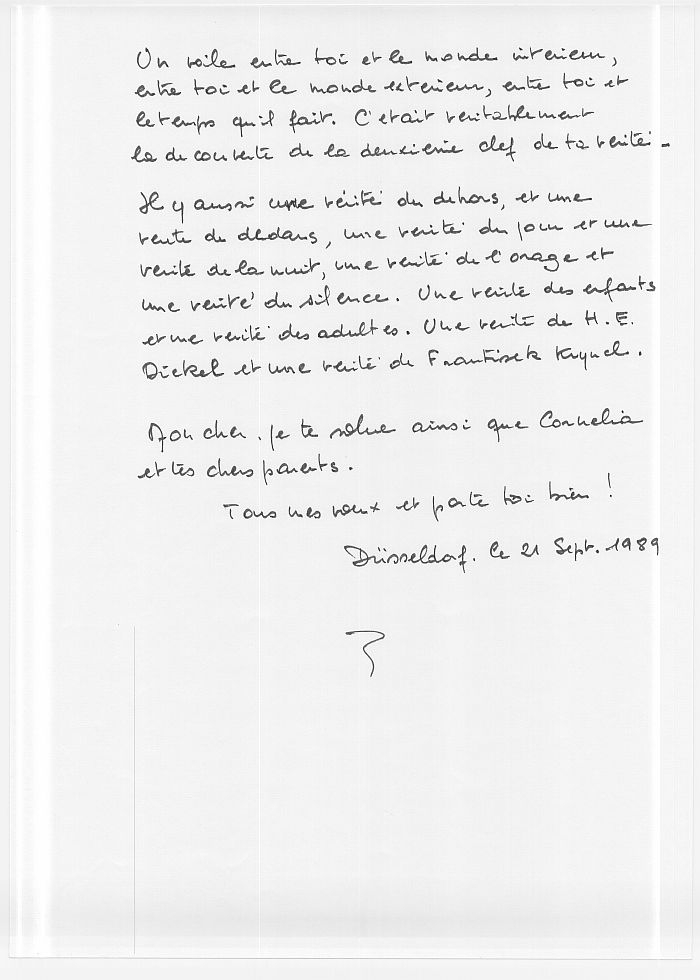 Un voile entre toi et le monde interieur,
entre toi et le monde exterieur, entre toi et
le temps qu'il fait. C'etait veritablement
la decouverte de la deuxieme clef de ta verité.
Il y aussi une vérité du dehors, et une
verite du dedans, une verité du jour et une
verité de la nuit, une verité de l'orage et
une verité du silence. Une verité des enfants
et une verité des adultes. Une verité de H. E.
Dickel et une verité de Frantisek
Mon cher, je te salue ainsi que Cornelia
et tes chers parents.
Tous mes voeux et porte toi bien !
Düsseldorf. le 21 Sept. 1989